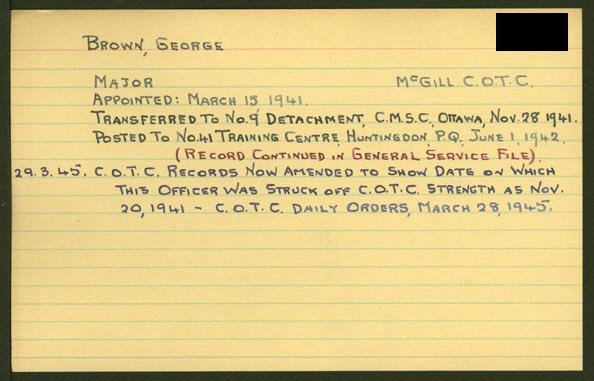 BROWN, GEORGE
MAJOR McGILL C.O.T.C.
APPOINTED: MARCH 15, 1941.
TRANSFERRED TO NO. 9 DETACHMENT, C.M.S.C., OTTAWA, NOV. 28 1941.
POSTED TO NO. 41 TRAINING CENTRE, HUNTINGDON, P.Q. JUNE 1, 1942.
(RECORD CONTINUED IN GENERAL SERVICE FILE).
29.3.45. C.O.T.C. RECORDS NOW AMENDED TO SHOW DATE ON WHICH
THIS OFFICER WAS STRUCK OFF C.O.T.C. STRENGTH AS NOV.
20, 1941 - C.O.T.C. DAILY ORDERS, MARCH 28, 1945.